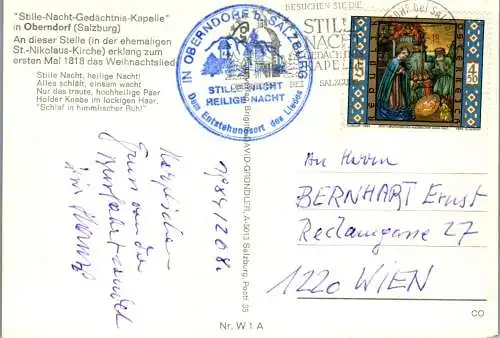 "Stille-Nacht-Gedächtnis-Kapelle"
in Oberndorf (Salzburg)
An dieser Stelle (in der ehemaligen
St.-Nikolaus-Kirche) erklang zum
ersten Mal 1818 das Weihnachtslied
Stille Nacht, heilige Nacht!
Alles schläft, einsam wacht
Nur das traute, hochheilige Paar
Holder Knabe im lockigen Haar,
"Schlaf in himmlischer Ruh!"
IN OBERNDORF B. SALZBURG
STILLE NACHT
HEILIGE NACHT
Dem Entstehungsort des Liedes
BESUCHEN SIE DIE
STILLE
NACHT
GEDÄCHTNIS
KAPELLE
BEI
SALZBURG
REPUBLIK ÖSTERREICH
4.50
1984 1208.
Herzlichen
Gruss von der
DAVID GRÜNDLER, A-5013 Salzburg, Postf. 35
An Herrn
BERNHART Ernst
Reclamgasse 27
1220 WIEN
CO
Nr. W 1 A